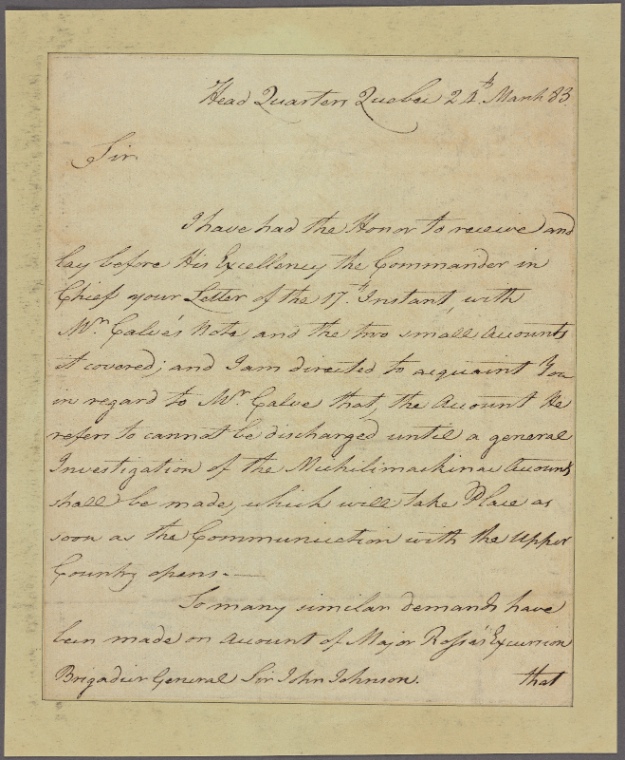 Head Quarters Quebec 24th March 83
Sir
I have had the Honor to receive and
lay before His Excellency the Commander in
Chief your Letter of the 17th Instant, with
Mr. Calvé's Note, and the two small Accounts
it covered; and I am directed to acquaint You
in regard to Mr. Calvé that, the Account He
refers to cannot be discharged until a general
Investigation of the Michilimackinac Accounts
shall be made, which will take Place as
soon as the Communication with the Upper
Country opens.—
So many similar demands have
been made on Account of Major Ross's Excursion
Brigadier General Sir John Johnson. that